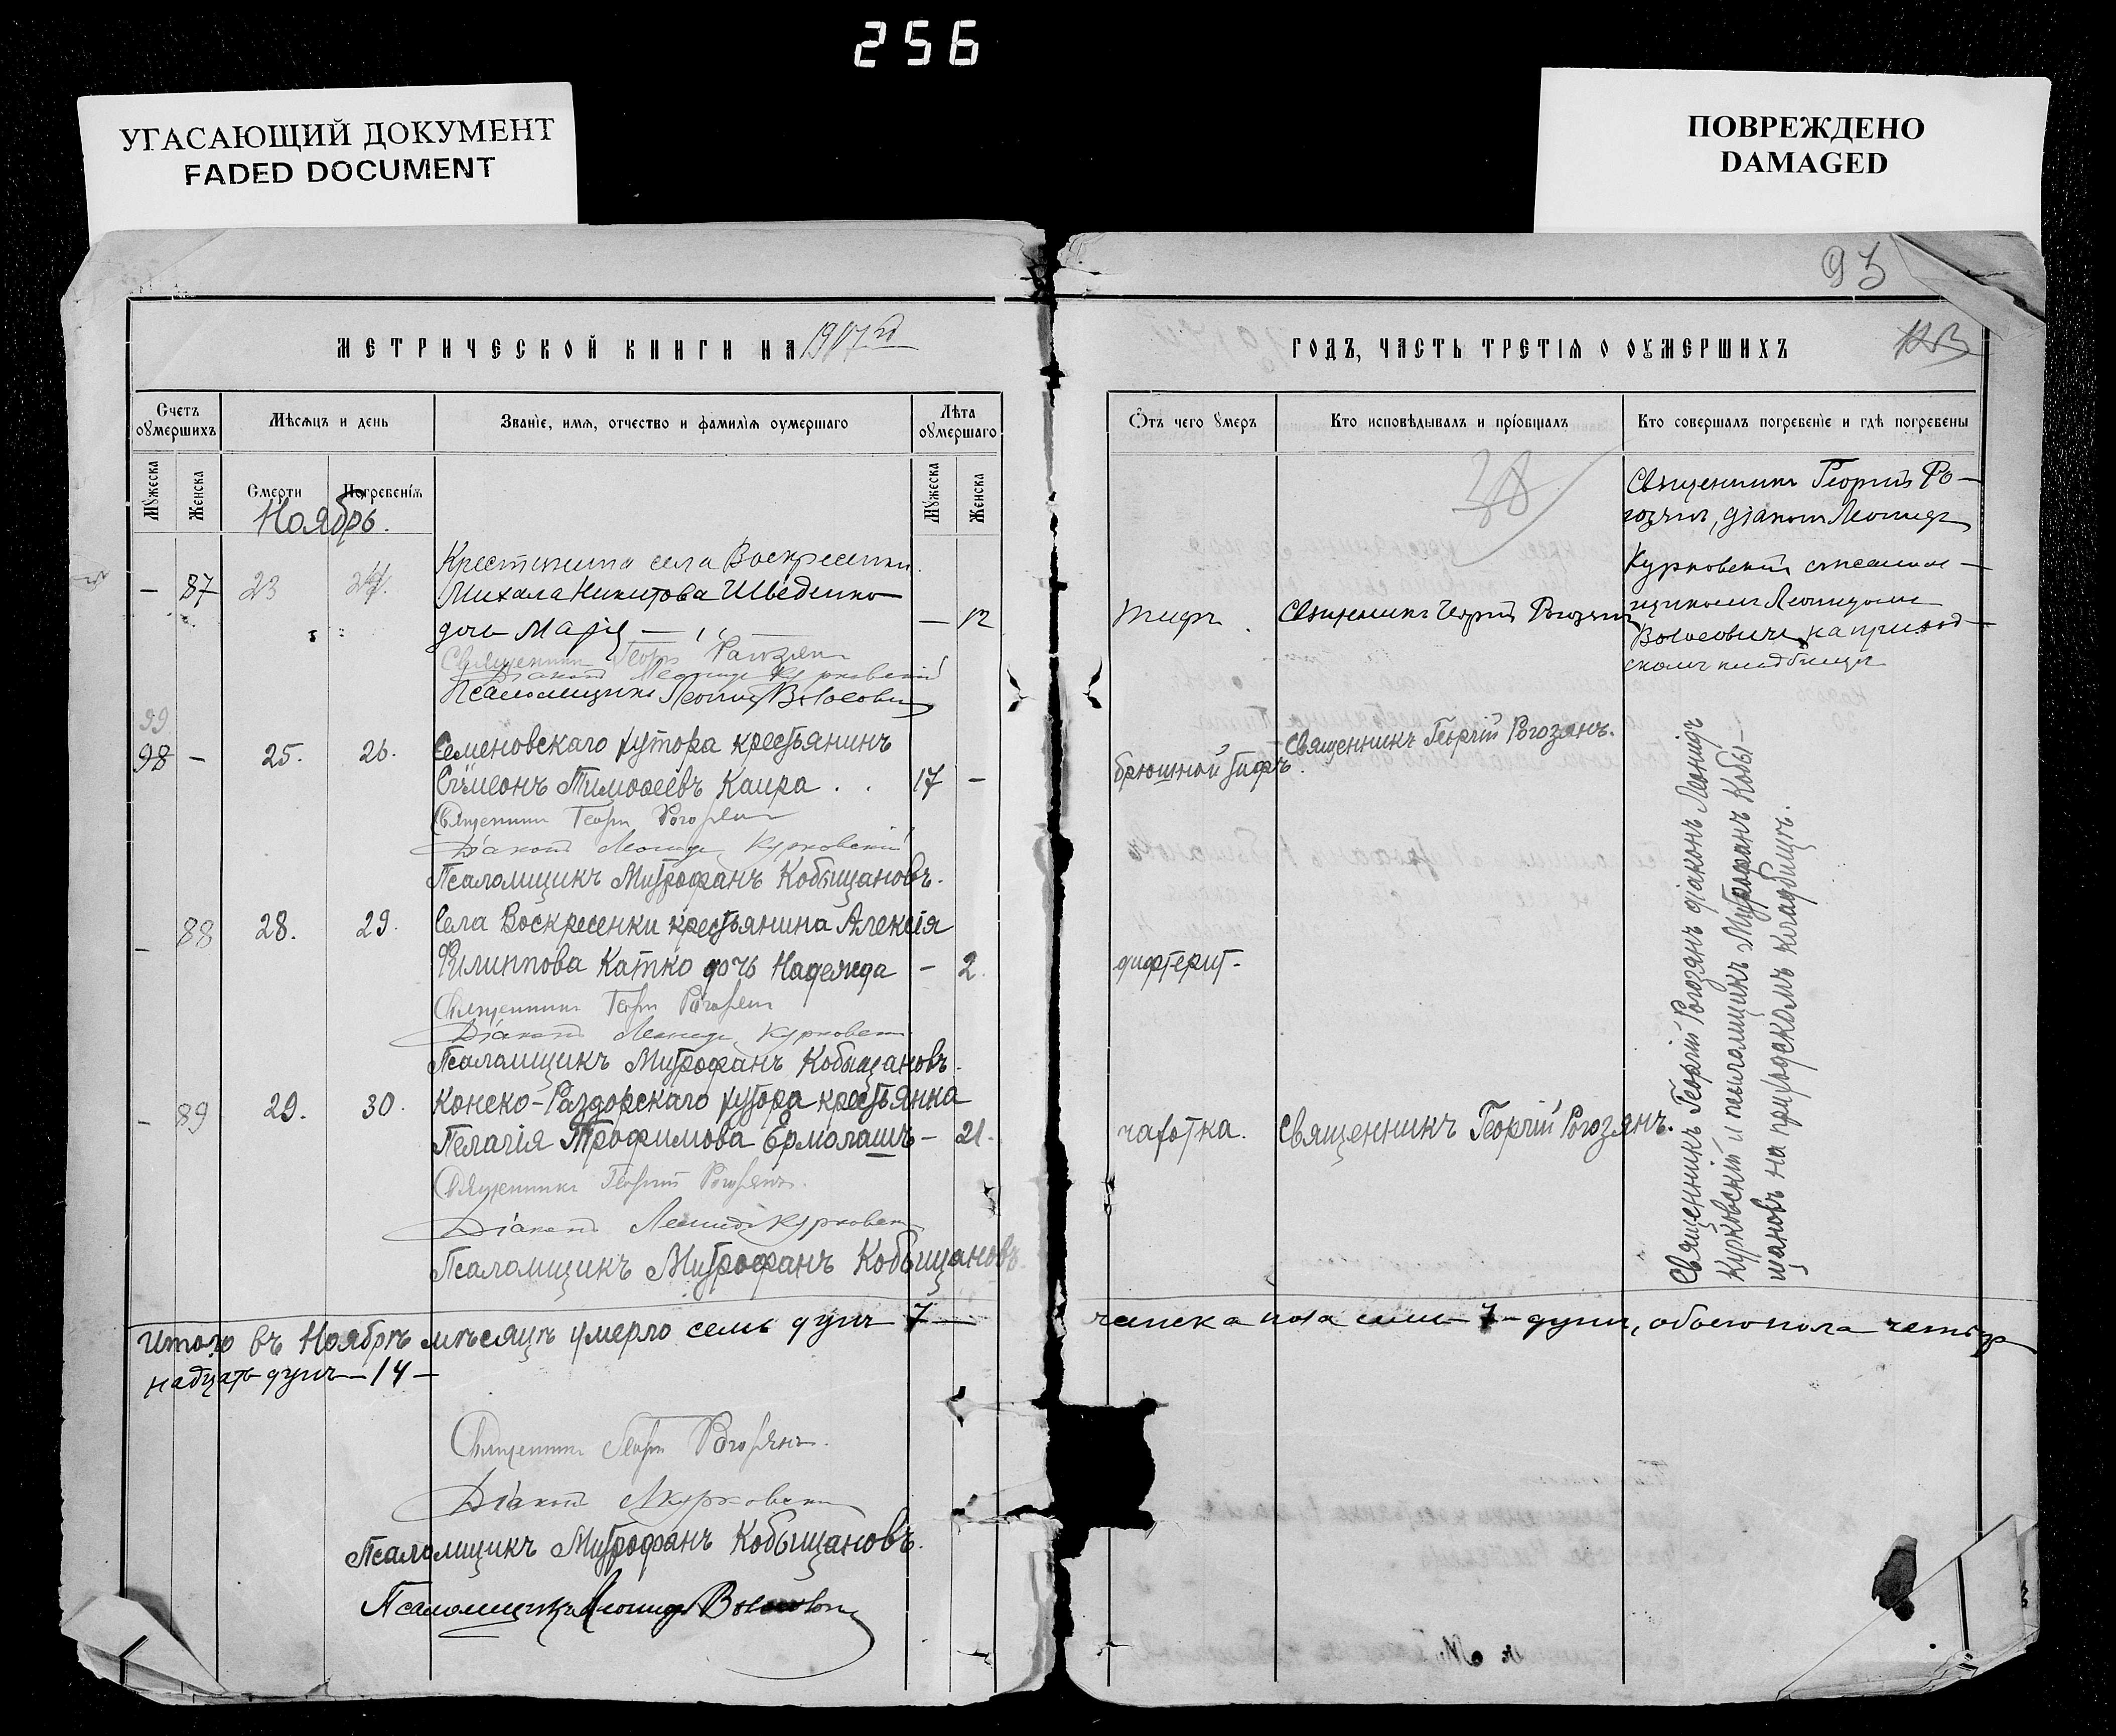 256
УГАСАЮЩИЙ ДОКУМЕНТ
FADED DOCUMENT
ПОВРЕЖДЕНО
DAMAGED
93
МЕТРИЧЕСКОЙ КНИГИ НА 1917
Счетъ оумершихъ
Мѣсяцъ и день
Званіе, имя, отчество и фамилія оумершаго
Лѣта оумершаго
Мужеска
Женска
Смерти
Погребенія
Мужеска
Женска
Ноябрь.
Крестьянина села Воскресенки
— 87 23 24. Михаила Никитова Шведенко
дочь Марія — " — — 12
Священникъ Георгій Рогозянъ
Діаконъ Леонидъ Курковскій
Псаломщикъ Леонидъ Волосовичъ
99
98 — 25. 26. Семеновскаго хутора крестьянинъ
Сѵмеонъ Тимоѳеевъ Каира . . 17 —
Священникъ Георгій Рогозянъ
Діаконъ Леонидъ Курковскій
Псаломщикъ Митрофанъ Кобыщановъ.
— 88 28. 29. Села Воскресенки крестьянина Алексія
Филиппова Катко дочь Надежда — 2.
Священникъ Георгій Рогозянъ
Діаконъ Леонидъ Курковскій
Псаломщикъ Митрофанъ Кобыщановъ.
— 89 29. 30. Конско-Раздорскаго хутора крестьянка
Пелагія Трофимова Ермолашъ — 21.
Священникъ Георгій Рогозянъ.
Діаконъ Леонидъ Курковскій
Псаломщикъ Митрофанъ Кобыщановъ.
Итого въ Ноябрѣ мѣсяцѣ умерло семь душъ 7 —
надцать душъ — 14 —
Священникъ Георгій Рогозянъ.
Діаконъ Л Курковскій
Псаломщикъ Митрофанъ Кобыщановъ.
Псаломщикъ Леонидъ Волосовичъ
ГОДЪ, ЧАСТЬ ТРЕТІЯ О ОУМЕРШИХЪ
Отъ чего умеръ
Кто исповѣдывалъ и пріобщалъ
Кто совершалъ погребеніе и гдѣ погребены
Священникъ Георгій Ро-
гозянъ, діаконъ Леонидъ
Курковскій с псалом-
щикомъ Леонидомъ
Волосовичъ на приход-
скомъ кладбищѣ
Тифъ. Священникъ Георгій Рогозянъ
брюшной тифъ. Священникъ Георгій Рогозянъ.
дифтерит.
чахотка. Священникъ Георгій Рогозянъ.
Священникъ Георгій Рогозянъ діаконъ Леонидъ
Курковскій и псаломщикъ Митрофанъ Кобы-
щановъ на приходскомъ кладбищѣ.
женска пола семь — 7 — душъ, обоего пола четыр